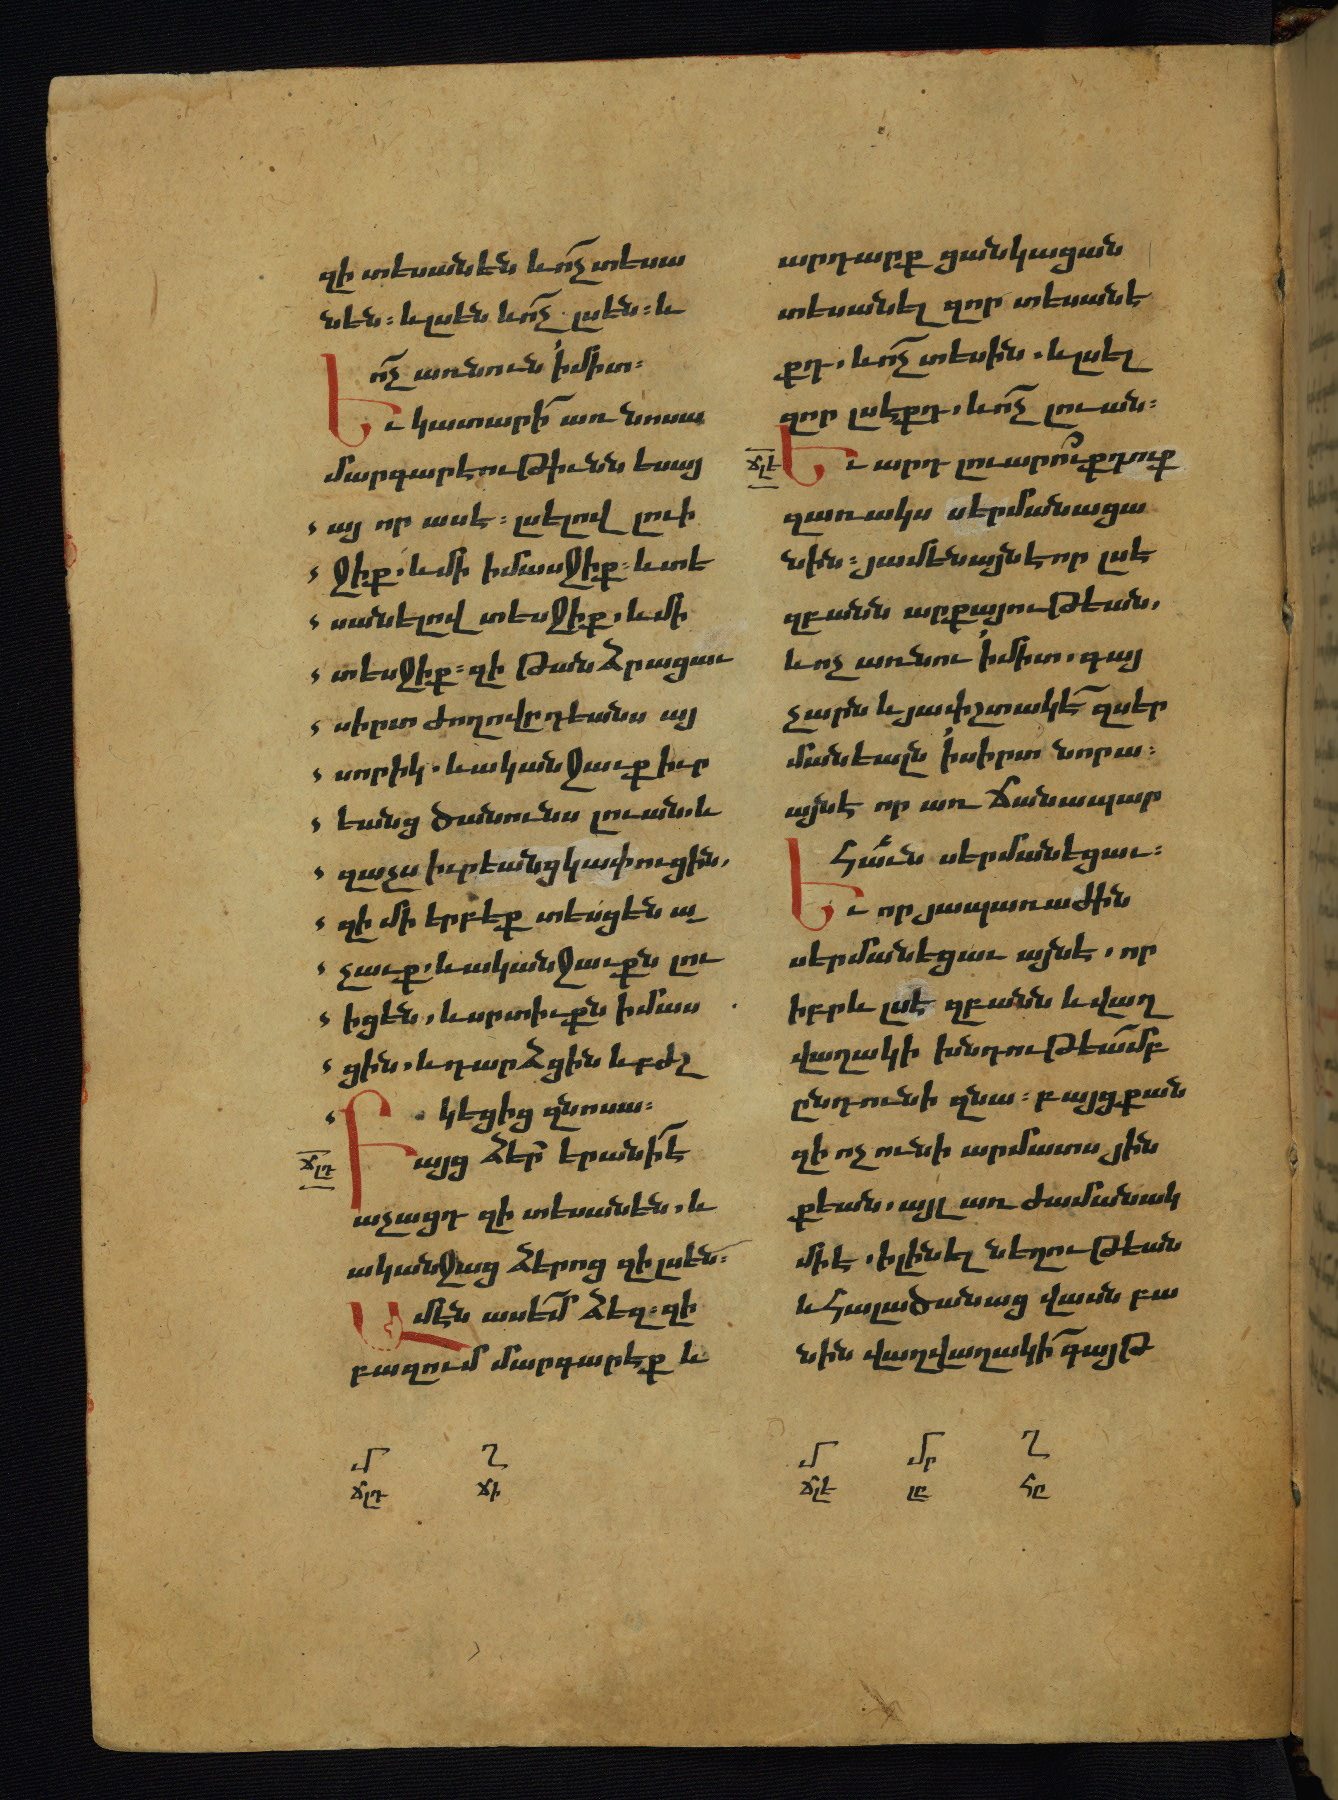 զի տեսանեն և ո՛չ տեսա
նեն։ և լսեն և ո՛չ լսեն։ և
ո՛չ առնուն ի՛միտ։
Եւ կատարի՛ առ նոսա
մարգարէութիւնն եսայ
այ որ ասէ։ լսելով լուի
ջիք, և մի իմասջիք։ և տե
սանելով տեսջիք, և մի
տեսջիք։ զի թանձրացաւ
սիրտ ժողովըդեանս այ
սորիկ. և ականջաւք իւր
եանց ծանունս լուան և
զաչս իւրեանց կափուցին,
զի մի երբեք տեսցեն ա
չաւք, և ականջաւքն լու
իցեն, և սրտիւքն իմաս
ցին, և դարձցին և բժշ
կեցից զնոսա։
ճլդ
Բայց ձեր՛ երանի՛ է
աչացդ զի տեսանեն, և
ականջաց ձերոց զի լսեն։
Ամէն ասե՛մ ձեզ։ զի
բազում մարգարէք և
մ ղ
ճլդ ճի
արդարք ցանկացան
տեսանել զոր տեսանէ
քդ, և ո՛չ տեսին. և լսել
զոր լսէքդ, և ո՛չ լուան։
ճլէ
Եւ արդ լուարո՛ւք դուք
զառակս սերմանացա
նին։ յամենայնէ որ լսէ
զբանն արքայութեան,
և ոչ առնու ի՛միտ, գայ
չարն և յափշտակէ՛ զսեր
մանեալն ի՛սիրտ նորա։
այնէ որ առ ճանապար
հա՛ւն սերմանեցաւ։
Եւ որ յապառաժին
սերմանեցաւ այնէ, որ
իբրև լսէ զբանն և վաղ
վաղակի խնդութեա՛մբ
ընդունի զնա։ բայց քան
զի ոչ ունի արմատս յին
քեան, այլ առ ժամանակ
մի է, ի լինել նեղութեան
և հալածանաց վասն բա
նին վաղվաղակի՛ գայթ
մ մր ղ
ճլէ լը հը